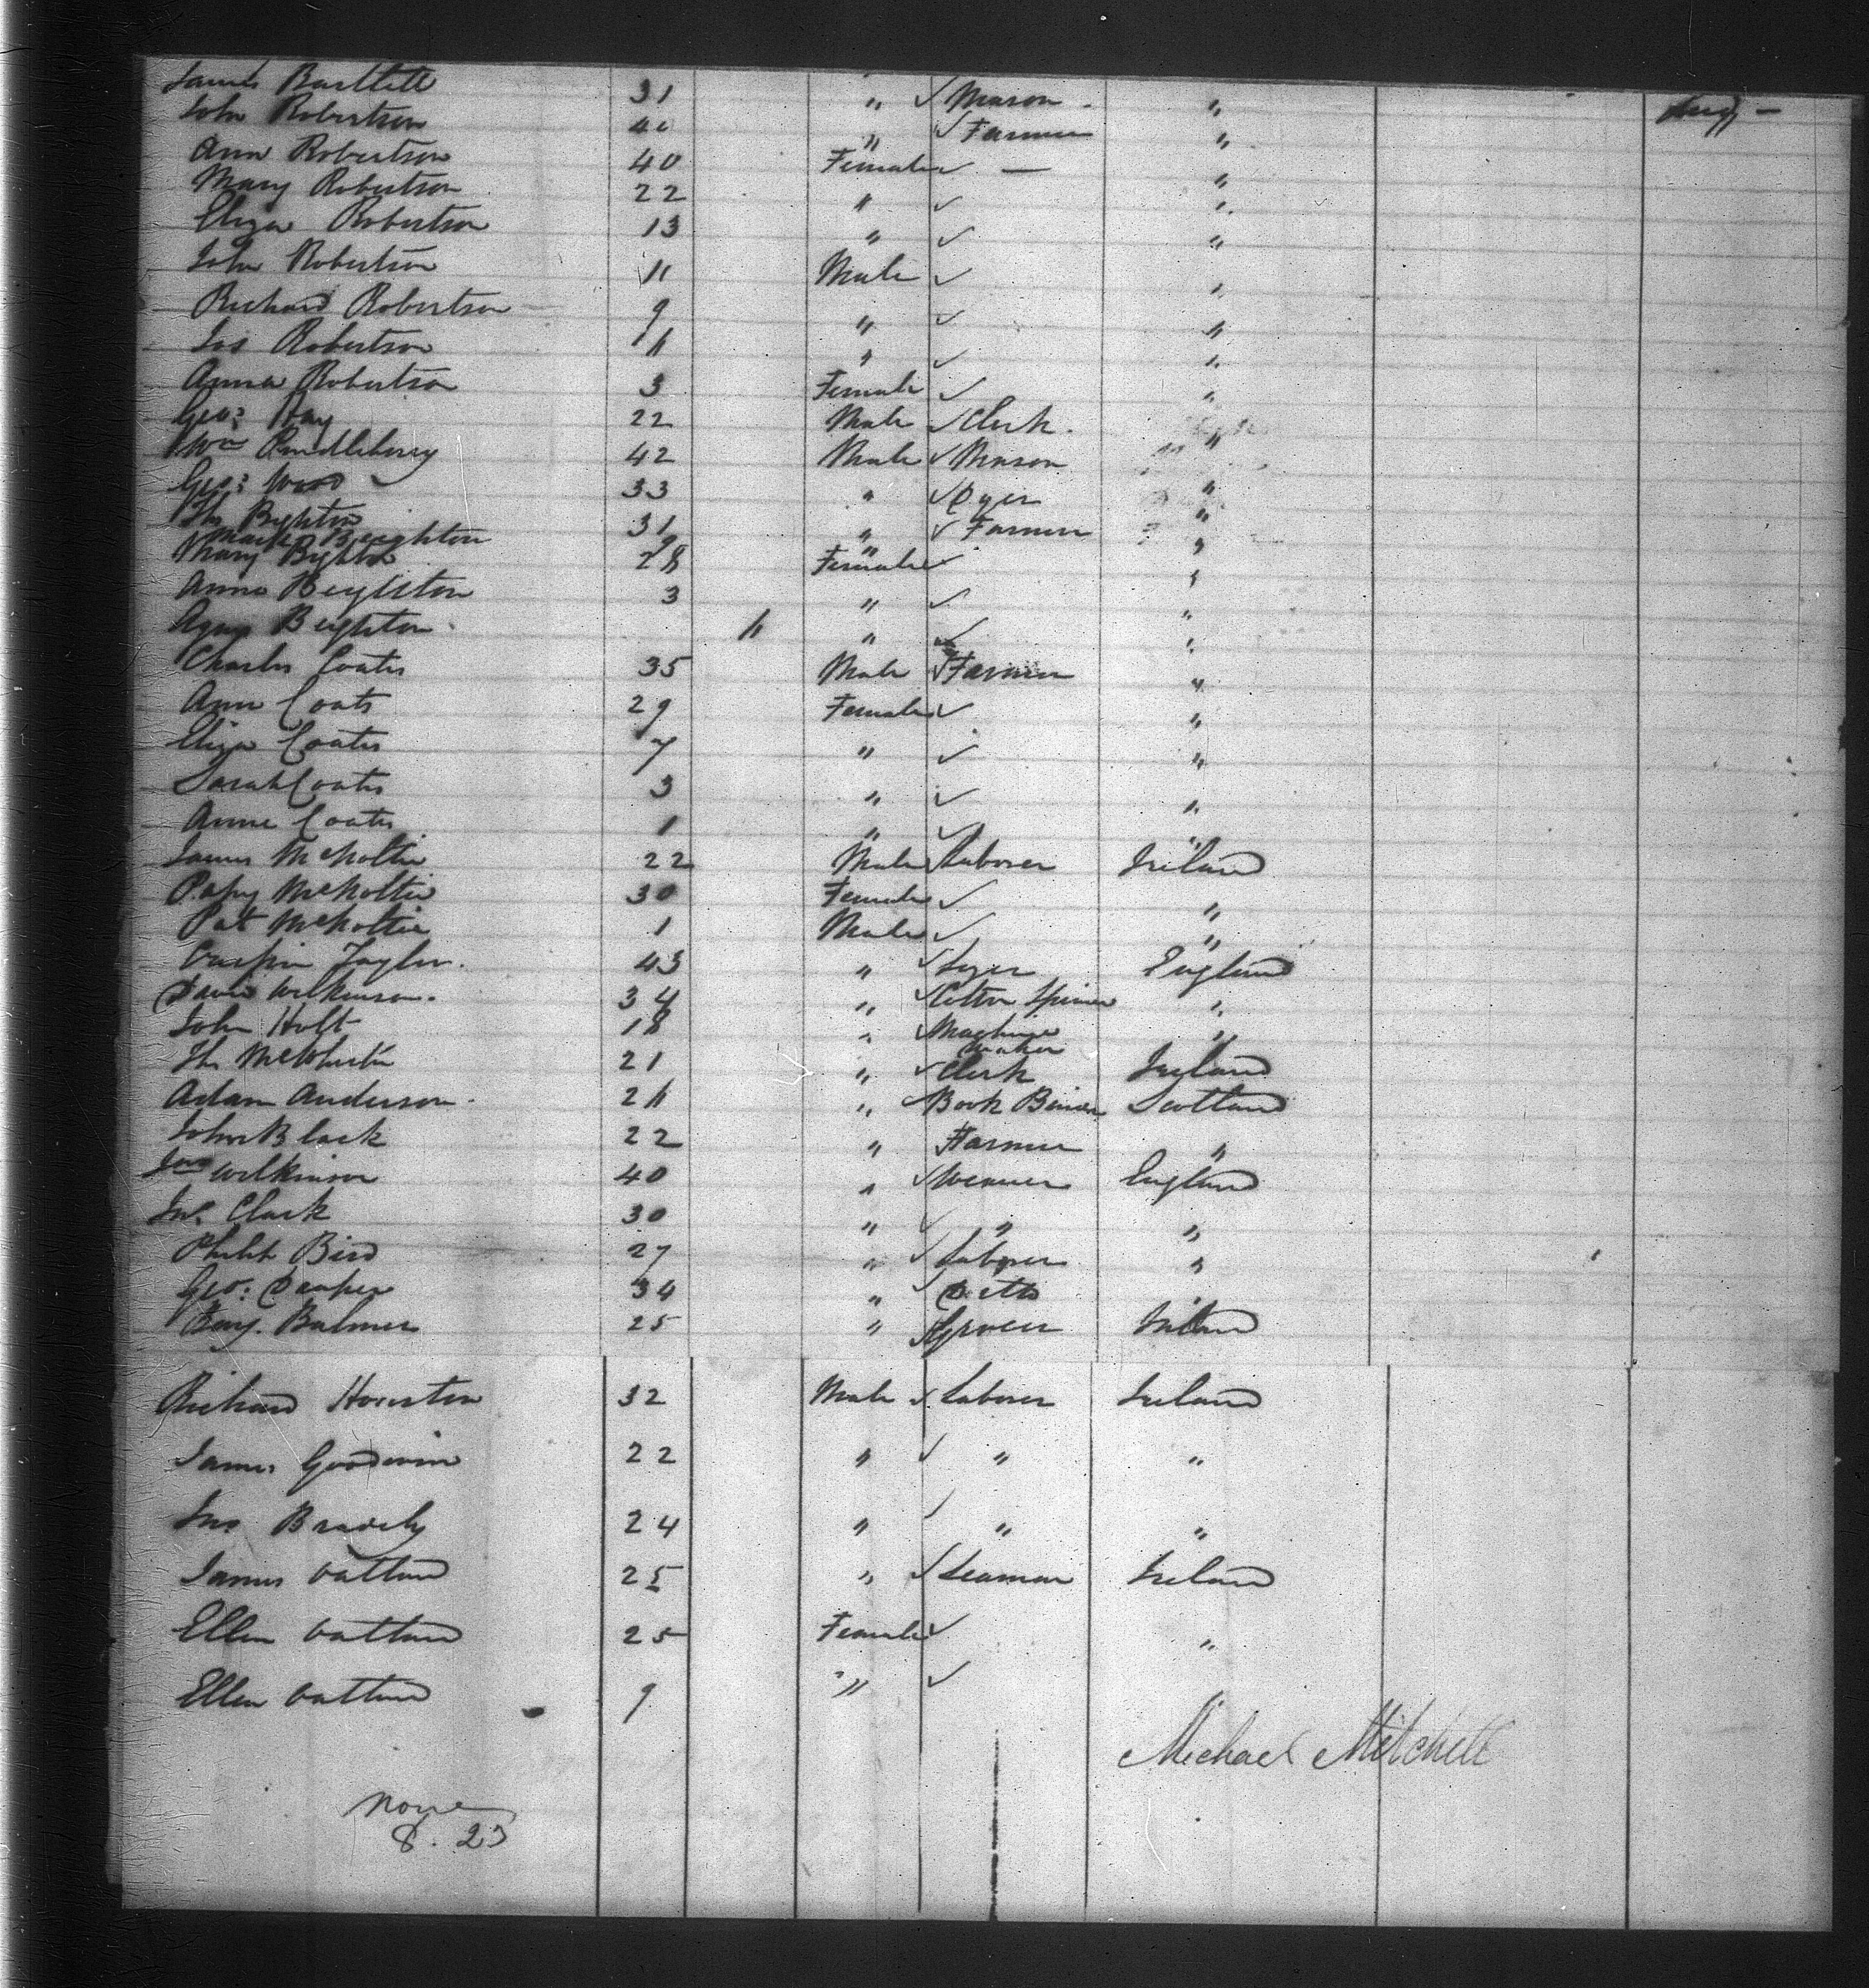 James Bartlett 31 " ✓ Mason - "
John Robertson 40 " ✓ Farmer "
Ann Robertson 40 Female ✓ — "
Mary Robertson 22 " ✓ "
Eliza Robertson 13 " ✓ "
John Robertson 11 Male ✓ "
Richard Robertson 9 " ✓ "
Jos Robertson " ✓ "
Anna Robertson 3 Female ✓ "
Geo: Hay 22 Male ✓ Clerk. "
Wm Pendlebury 42 Male ✓ Mason "
Geo: Wood 33 " ✓ Dyer "
Ths Byhton 31 " ✓ Farmer "
Beighton "
Mary Byhton 28 Female ✓ "
Anna Beighton 3 " ✓ "
Beighton " ✓ "
Charles Coates 35 Male ✓ Farmer "
Ann Coats 29 Female ✓ "
Eliza Coates 7 " ✓ "
Sarah Coates 3 " ✓ "
Anne Coates 1 " ✓ "
James 22 Male ✓ Laborer Ireland
30 Female ✓ "
Pat 1 Male ✓ "
Taylor. 43 " ✓ England
David Wilkinson. 34 " ✓ Cotton Spinner "
John Holt 18 " ✓ Machine "
maker
Ths 21 " ✓ Clerk Ireland
Adam Anderson. 26 " ✓ Book Binder Scotland
John Black 22 " Farmer "
Jno Wilkinson 40 " ✓ Weaver England
Jno. Clark 30 " ✓ " "
Philip Bird 27 " ✓ Laborer "
Geo: Draper 34 " ✓ Ditto "
Benj. Balmer 25 " ✓ Grocer Ireland
Richard Houston 32 Male ✓ Laborer Ireland
James Goodwin 22 " ✓ " "
Jno 24 " ✓ " "
James 25 " ✓ Seaman Ireland
Ellen 25 Female ✓ "
Ellen 9 " ✓ "
Michael Mitchell
none
8. 23